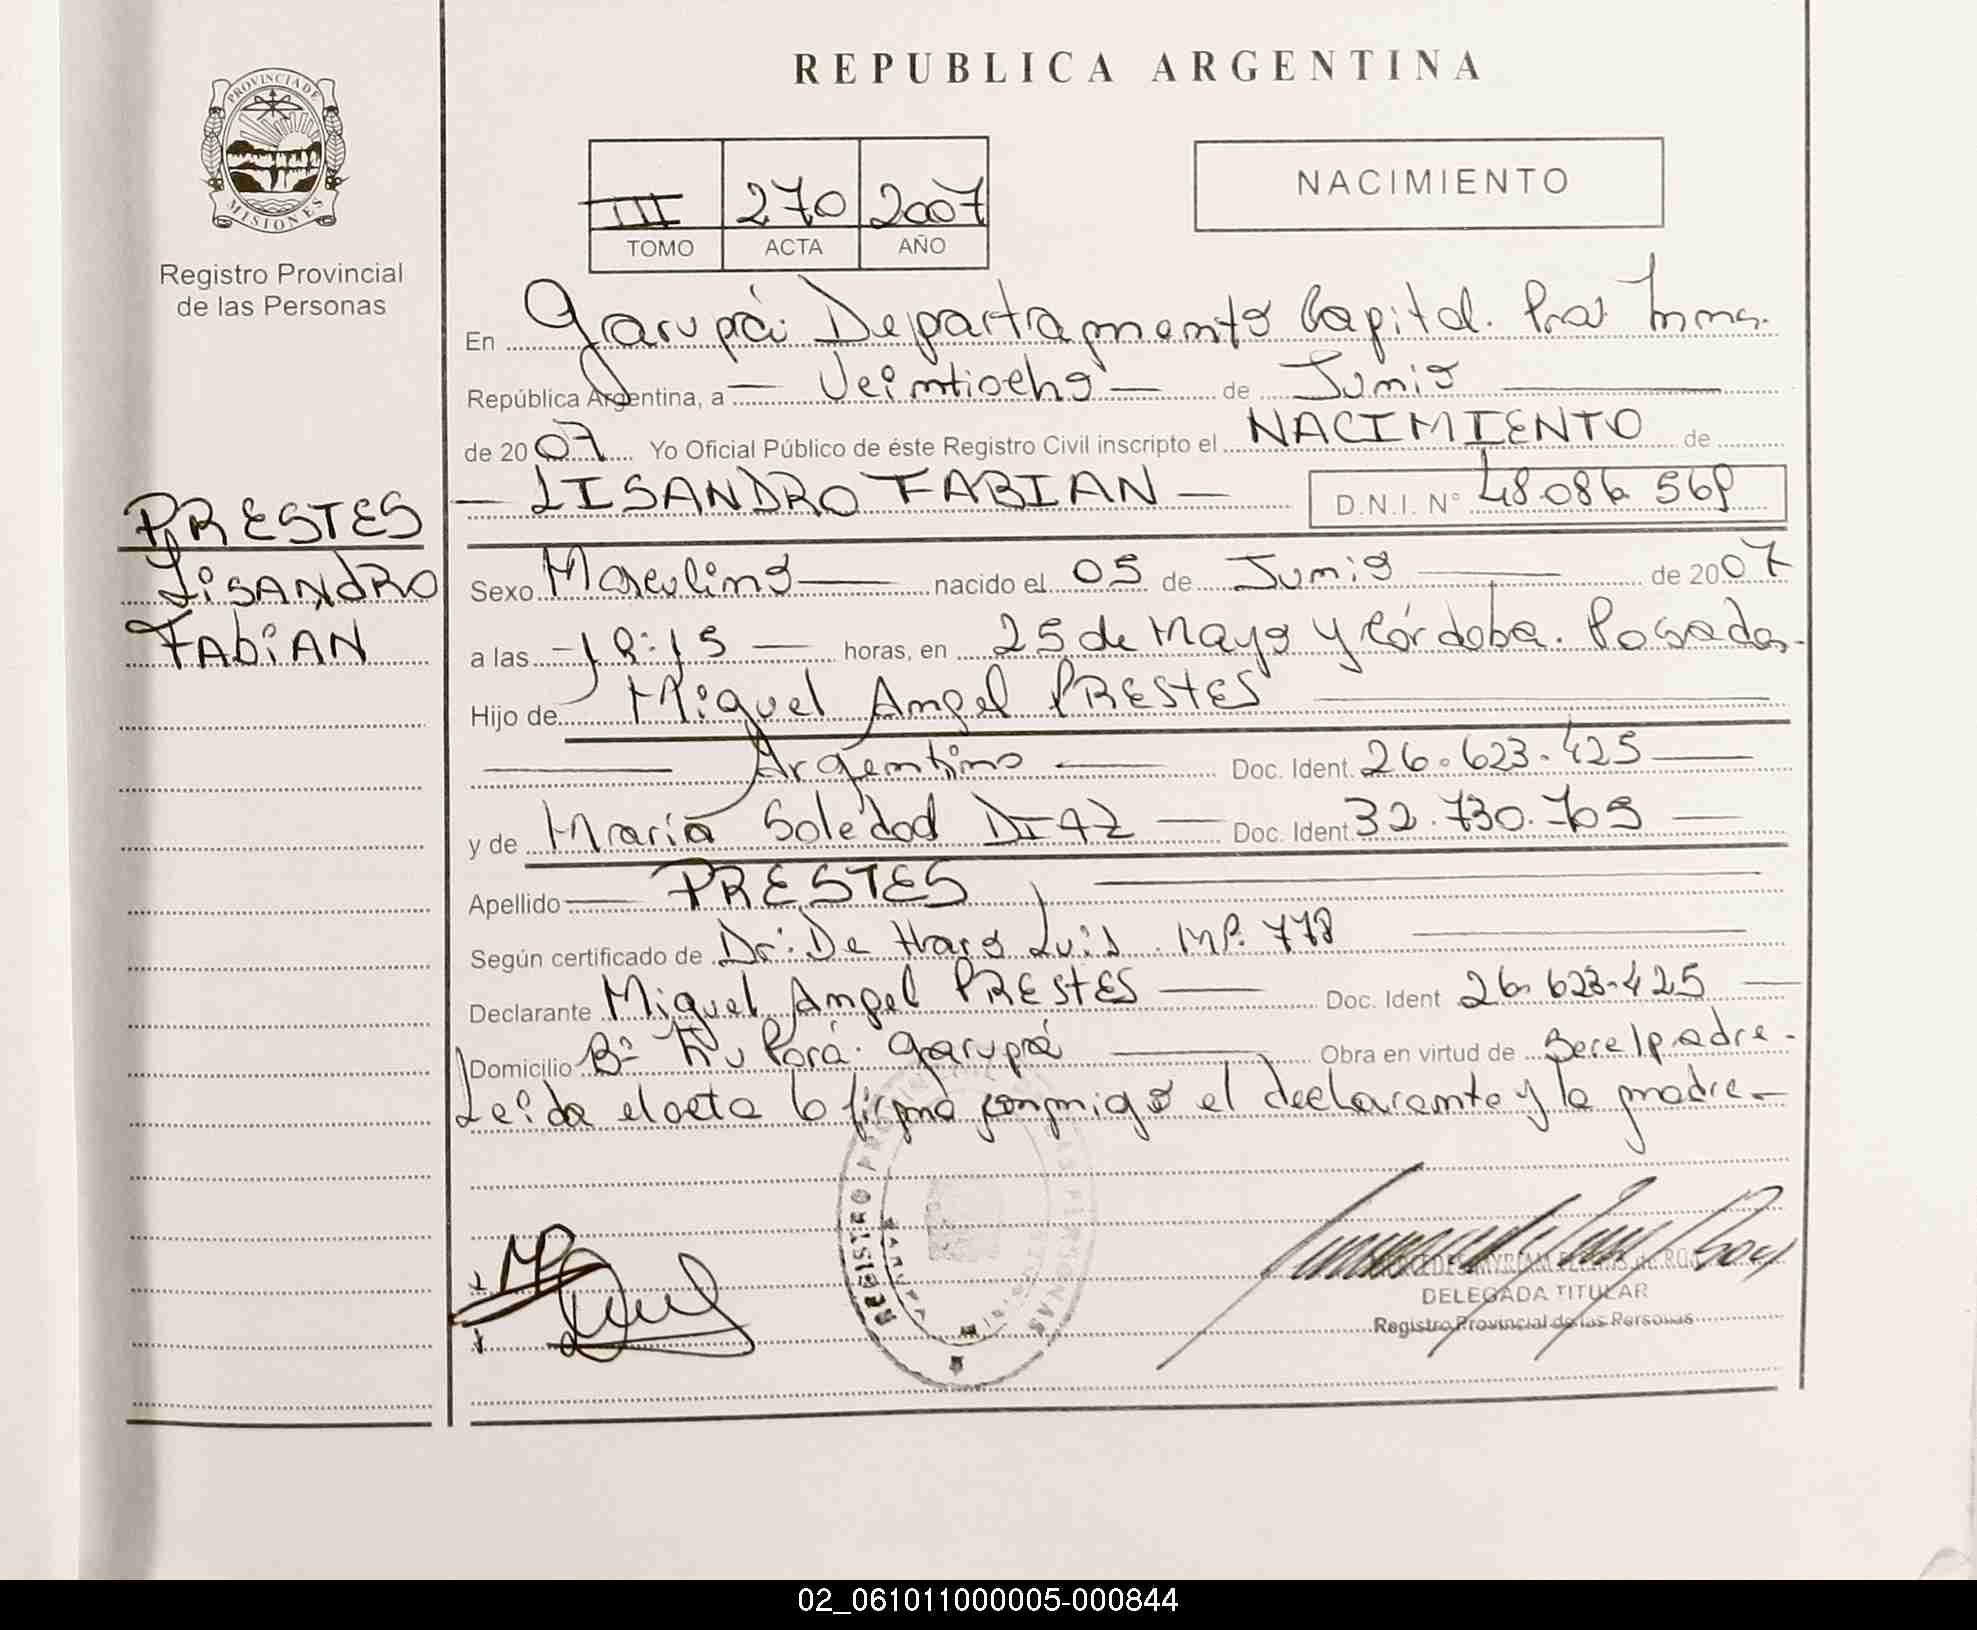 REPUBLICA ARGENTINA
PROVINCIA DE
MISIONES
Registro Provincial
de las Personas
III 270 2007
TOMO ACTA AÑO
NACIMIENTO
En Garupá Departamento Capital.
República Argentina, a Veintiocho de Junio
de 2007 Yo Oficial Público de éste Registro Civil inscripto el NACIMIENTO de
LISANDRO FABIAN D.N.I. N°
PRESTES
LISANDRO
FABIAN
Sexo Masculino nacido el 05 de Junio de 2007
a las horas, en 25 de Mayo y Córdoba. Posadas
Hijo de Miguel Angel PRESTES
Argentino Doc. Ident. 26.623.425
y de María Soledad DIAZ Doc. Ident 32.730.709
Apellido PRESTES
Según certificado de Dr. De Haro Luis. MP. 778
Declarante Miguel Angel PRESTES Doc. Ident 26.623.425
Domicilio B° Garupá Obra en virtud de Ser el padre.
Leida el acta la firma conmigo el declarante y la madre
REGISTRO PROVINCIAL DE LAS PERSONAS
GARUPA
DELEGADA TITULAR
Registro Provincial de las Personas
02_061011000005-000844